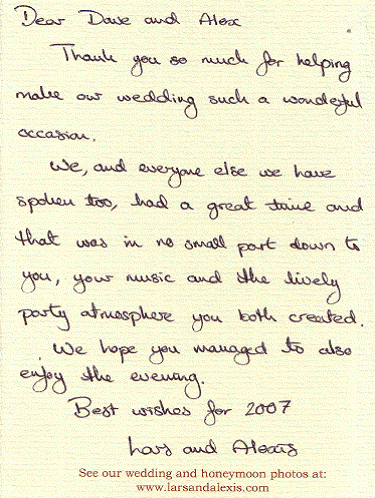 Dear Dave and Alex
Thank you so much for helping
make our wedding such a wonderful
occasion.
We, and everyone else we have
spoken too, had a great time and
that was in no small part down to
you, your music and the lively
party atmosphere you both created.
We hope you managed to also
enjoy the evening.
Best wishes for 2007
Lars and Alexis
See our wedding and honeymoon photos at:
www.larsandalexis.com